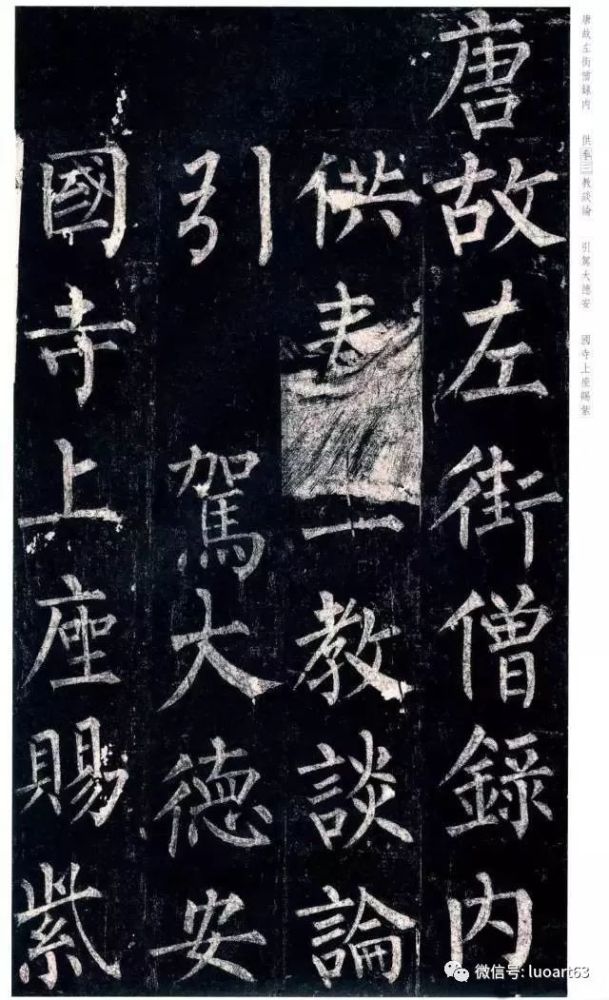 唐故左街僧錄內
供奉三教談論
引駕大德安
國寺上座賜紫
唐故左街僧録内 供奉三教談論 引駕大德安 國寺上座賜紫
微信号: luoart63